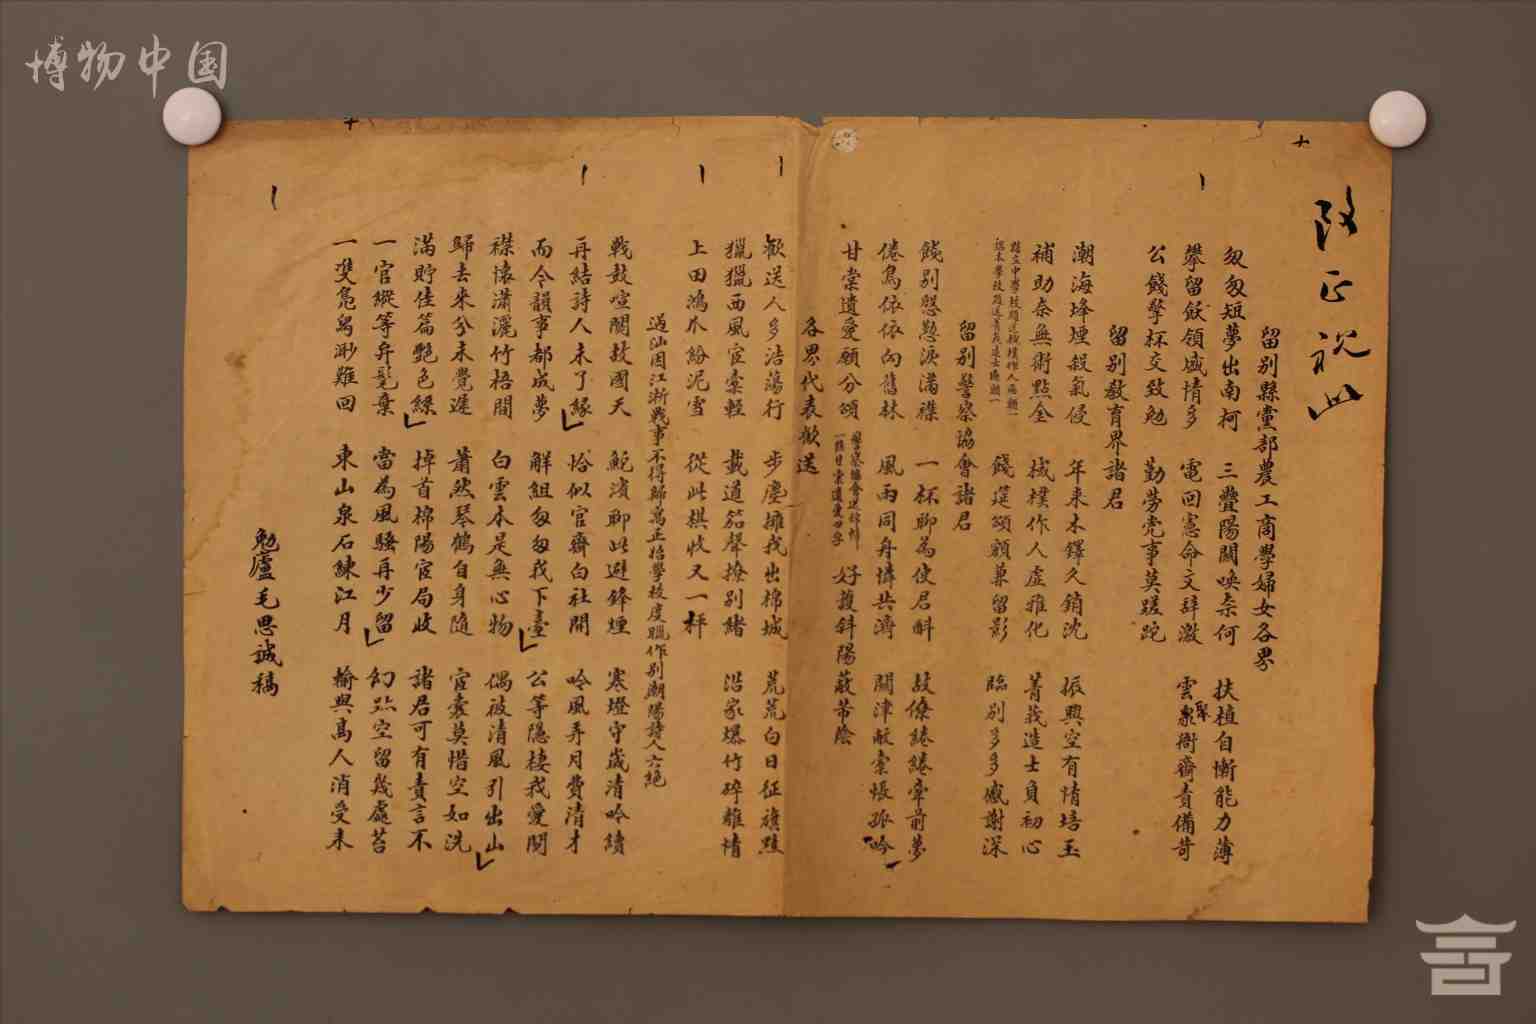 博物中国
改正祝山
留别縣黨部農工商學婦女各界
匆匆短夢出南柯 三疊陽關喚奈何 扶植自慚能力薄
攀留飫領盛情多 電回憲命文辞激 雲聚衙齋責備苛
公餞擎杯交致勉 勤勞党事莫蹉跎
留别教育界諸君
潮海烽煙殺氣侵 年来木鐸久銷沈 振興空有情培玉
補助奈無術點金 棫樸作人虚雅化 菁莪造士負初心
縣立中學校贈送棫樸作人匾額一
餞筵頌額兼留影 臨别多多感謝深
留别警察協會諸君
餞别慇懃淚满襟 一杯聊為使君斟 故僚綣綣牵前夢
倦鳥依依向舊林 風雨同舟憐共濟 關津敝橐悵孤吟
甘棠遺愛願分頌 警察協會送錦幛一懸甘棠遺愛四字 好護斜陽蔽芾蔭
各界代表歡送
歡送人多浩蕩行 步塵擁我出棉城 荒荒白日征旗黯
獵獵西風宦橐輕 載道笳聲撩别緒 沿家爆竹碎離情
上田鴻爪紛泥雪 從此棋收又一枰
過汕因江浙戰事不得歸寓正始學校度臘作别潮陽詩人六絶
戰鼓喧闐故國天 鮀濱聊此避鋒煙 寒燈守歲清吟續
再結詩人未了緣 恰似官齋白社開 吟風弄月費清才
而今韻事都成夢 解組匆匆我下臺 公等隱棲我愛閒
襟懷瀟灑竹梧間 白雲本是無心物 偶被清風引出山
歸去来兮未覺遲 蕭然琴鶴自身隨 宦囊莫惜空如洗
滿貯佳篇艷色絲 掉首棉陽宦局收 諸君可有責言不
一官縱等弁髦棄 當為風騷再少留 幻跡空留幾處苔
一雙凫舄渺難回 東山泉石練江月 輸與高人消受来
勉廬毛思誠稿